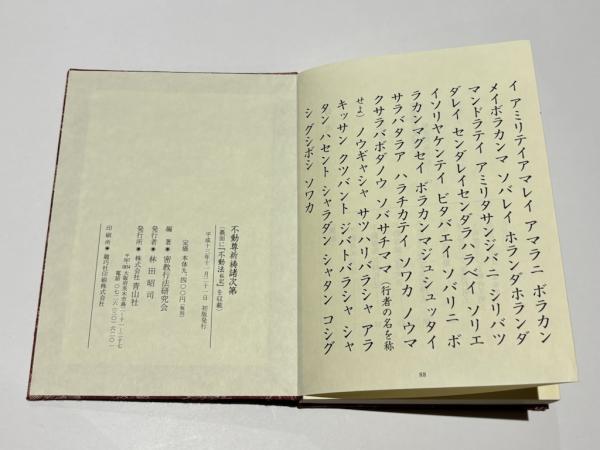 イ アミリテイアマレイ アマラニ ボラカン
メイボラカンマ ソバレイ ホランダホランダ
マンドラテイ アミリタサンジバニ シリバツ
ダレイ センダレイセンダラハラベイ ソリエ
イソリヤケンテイ ビタバエイ ソバリニ ボ
ラカンマグセイ ボラカンマジュシュッタイ
サラバタラア ハラチカテイ ソワカ ノウマ
クサラバボダノウ ソバサチママ(行者の名を称
せよ) ノウギャシャ サツハリバラシャ アラ
キッサン クツバント ジバトバラシャ シャ
タン ハセント シャラダン シャタン コシグ
シ グシボシ ソワカ
88
不動尊祈祷諸次第
平成十三年十一月二十一日 初版発行
定価 本体九、四〇〇円(税別)
編 著● 密教行法研究会
発行者● 林田昭司
発行所● 株式会社 青山社